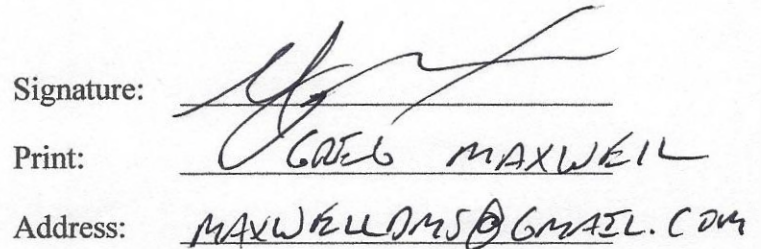 Signature:
Print: GREG MAXWELL
Address: MAXWELLDMS@GMAIL.COM